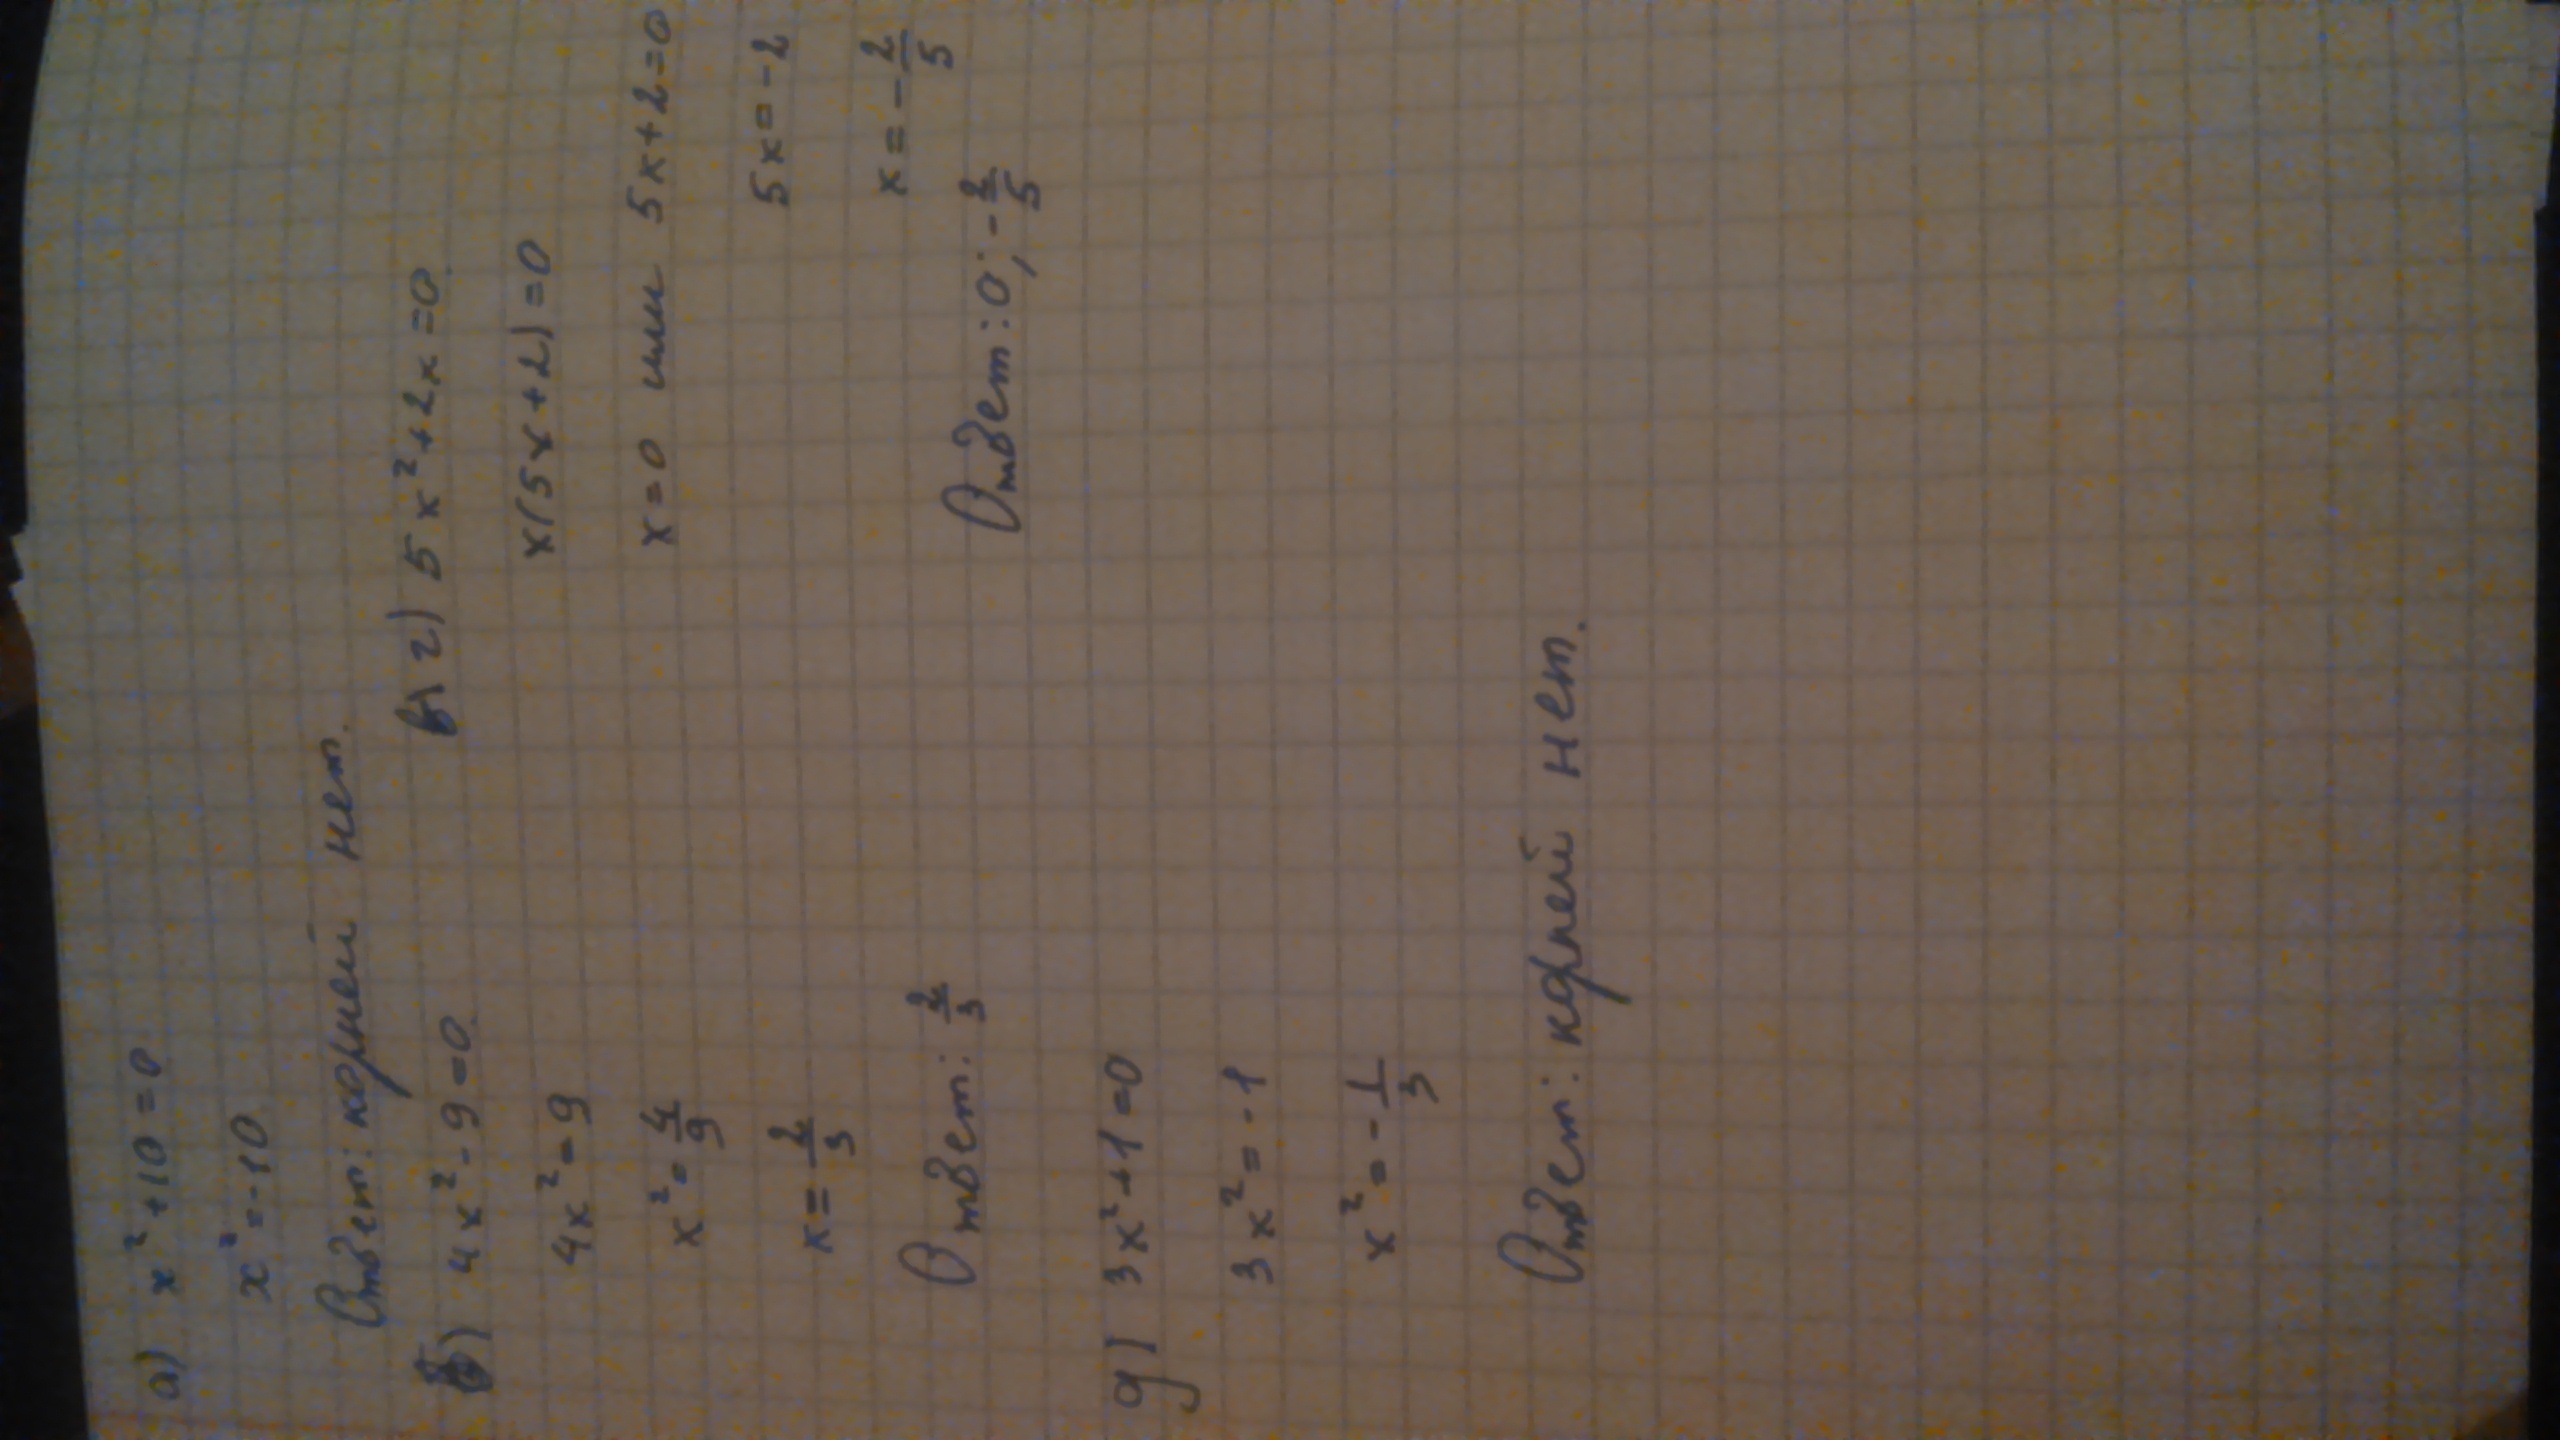 а) x²+10=0
x²=-10
Ответ: корней нет.
б) 4x²-9=0.
4x²=9
x²=4/9
x=2/3
Ответ: 2/3
г) 5x²+2x=0.
x(5x+2)=0
x=0 или 5x+2=0
5x=-2
x=-2/5
Ответ: 0; -2/5
д) 3x²+1=0
3x²=-1
x²=-1/3
Ответ: корней нет.